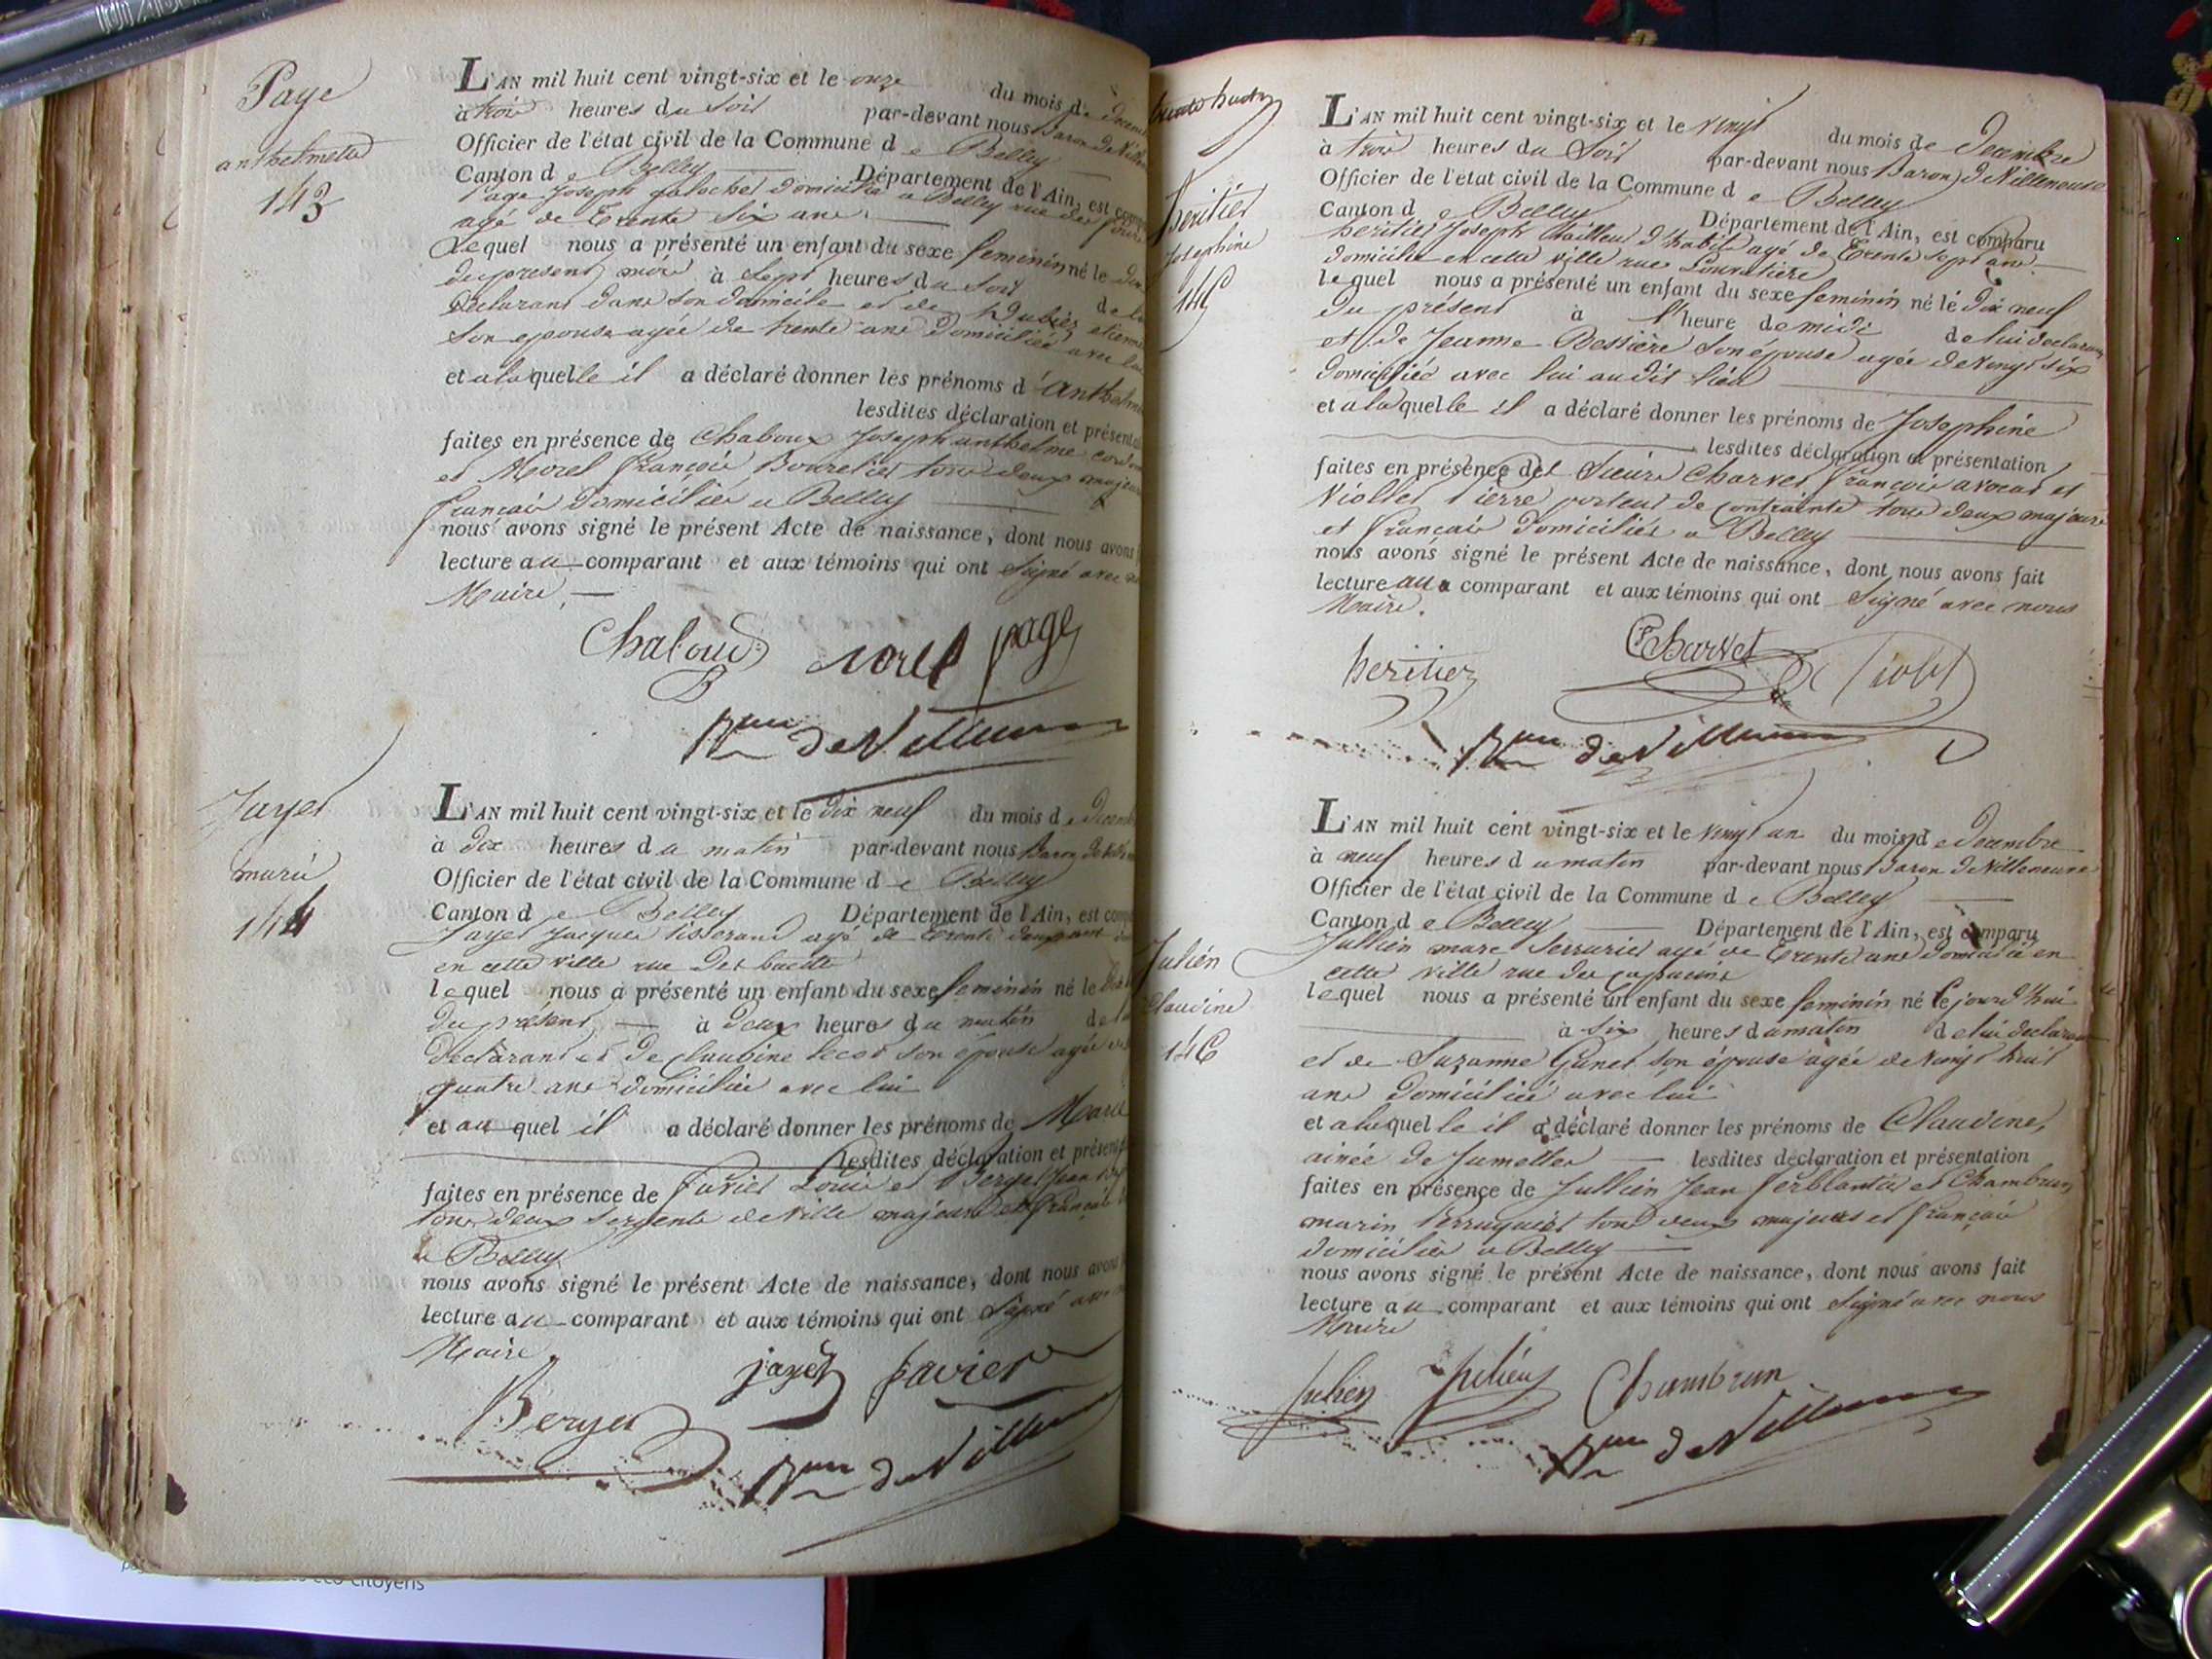 Page
anthelmette
143
L'AN mil huit cent vingt-six et le onze du mois de Decem
à trois heures du soir par-devant nous Baron de Ville
Officier de l'état civil de la Commune de Belley
Canton de Belley Département de l'Ain, est comp
Page Joseph galochet domicilié a Belley rue des
agé de trente six ans
Lequel nous a présenté un enfant du sexe feminin né le
du present mois à sept heures du soir de l
declarant dans son domicile et de Dubiez etienne
son epouse agée de trente ans domiciliée avec lui
et a la quelle il a déclaré donner les prénoms d'anthelm
lesdites déclaration et présent
faites en présence de Chaboux Joseph anthelme cord
et Morel françois Bourelier tous deux majeurs
francais domiciliés a Belley
nous avons signé le présent Acte de naissance, dont nous avons
lecture au comparant et aux témoins qui ont signé avec
Maire.
Chaboud morel page
Bon de Villeneuve
Jayet
marie
144
L'AN mil huit cent vingt-six et le dix neuf du mois de Decemb
à dix heures du matin par-devant nous Baron de Ville
Officier de l'état civil de la Commune de Belley
Canton de Belley Département de l'Ain, est comp
Jayet Jacques tisserand agé de trente deux ans
en cette ville rue des
lequel nous a présenté un enfant du sexe feminin né le
du present à deux heures du matin de l
declarant et de claudine son épouse agée de
quatre ans domiciliée avec lui
et au quel il a déclaré donner les prénoms de Marie
lesdites déclaration et présent
faites en présence de favier Louis et Berger Jean
tous deux sergents de ville majeurs et français
a Belley
nous avons signé le présent Acte de naissance, dont nous avons
lecture au comparant et aux témoins qui ont signé avec
Maire
Berger jayet favier
Bon de Villeneuve
heritier
Josephine
145
L'AN mil huit cent vingt-six et le vingt du mois de Decembre
à trois heures du soir par-devant nous Baron de Villeneuve
Officier de l'état civil de la Commune de Belley
Canton de Belley Département de l'Ain, est comparu
heritier Joseph tailleur d'habit agé de trente sept ans
domicilié en cette ville rue
lequel nous a présenté un enfant du sexe feminin né le dix neuf
du présent à l'heure de midi de lui declarant
et de Jeanne Bessière son épouse agée de vingt six
domiciliée avec lui audit lieu
et a la quelle il a déclaré donner les prénoms de Josephine
lesdites déclaration et présentation
faites en présence des sieurs Charvet françois avocat et
Viollet Pierre porteur de contrainte tous deux majeurs
et français domiciliés a Belley
nous avons signé le présent Acte de naissance, dont nous avons fait
lecture au comparant et aux témoins qui ont signé avec nous
Maire.
heritier Charvet Violet
Bon de Villeneuve
Julién
Claudine
146
L'AN mil huit cent vingt-six et le vingt un du mois de Decembre
à neuf heures du matin par-devant nous Baron de Villeneuve
Officier de l'état civil de la Commune de Belley
Canton de Belley Département de l'Ain, est comparu
Jullien marc serrurier agé de trente ans domicilié en
cette ville rue des capucins
lequel nous a présenté un enfant du sexe feminin né cejourd'hui
à six heures du matin de lui declarant
et de Suzanne Ganet son épouse agée de vingt huit
ans domiciliée avec lui
et a laquelle il a déclaré donner les prénoms de Claudine,
ainée de Jumelles lesdites déclaration et présentation
faites en présence de Jullien Jean ferblantier et Chambrun
marin Perruquier tous deux majeurs et français
domiciliés a Belley
nous avons signé le présent Acte de naissance, dont nous avons fait
lecture au comparant et aux témoins qui ont signé avec nous
Maire
julien juliéns Chambrun
Bon de Villeneuve
éco-citoyens